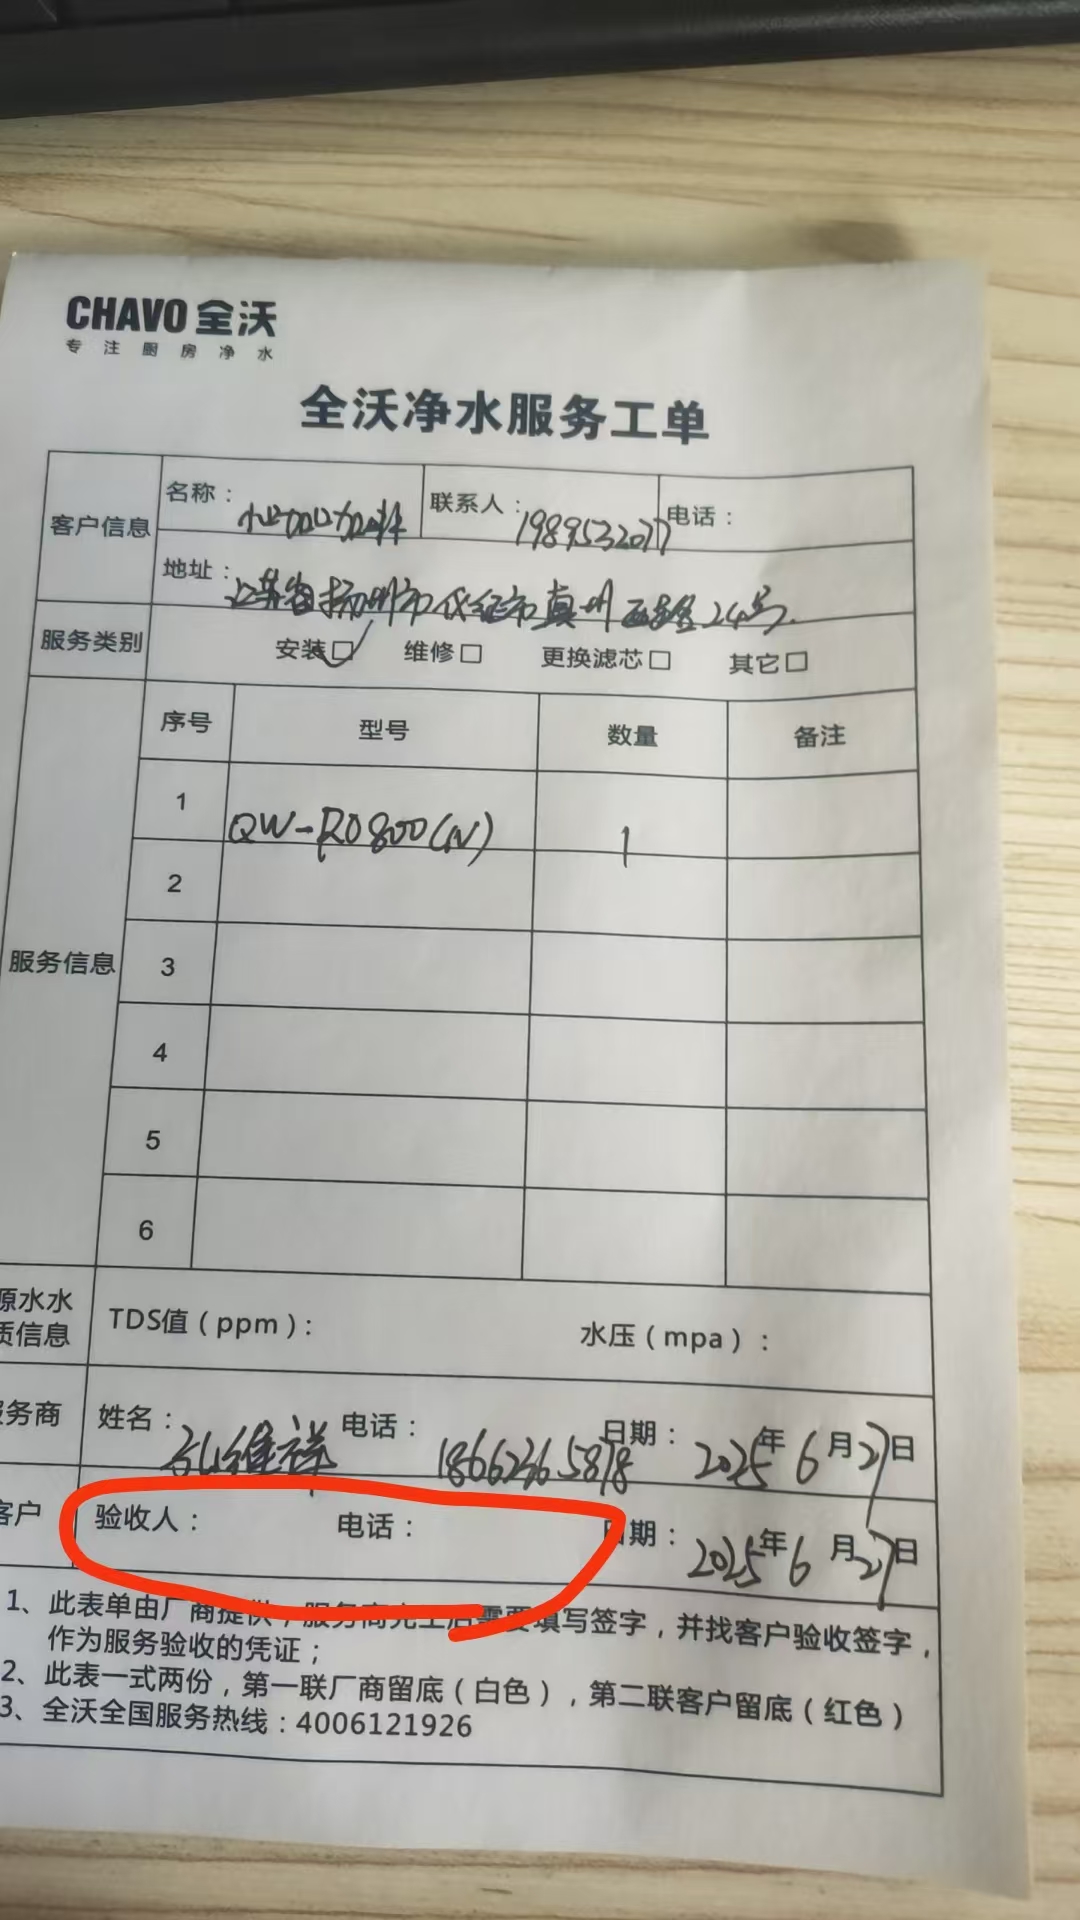 CHAVO 全沃
专注厨房净水
全沃净水服务工单
客户信息
名称：
联系人：1989532077
电话：
地址：江苏省扬州市仪征市真州西路24号
服务类别
安装☑ 维修□ 更换滤芯□ 其它□
服务信息
序号 型号 数量 备注
1 QW-RO800(N) 1
2
3
4
5
6
源水水质信息
TDS值（ppm）： 水压（mpa）：
务商
姓名： 维祥 电话：18662365878 日期：2025年6月27日
客户
验收人： 电话： 日期：2025年6月27日
1、此表单由厂商提供，服务商完工后需要填写签字，并找客户验收签字，
作为服务验收的凭证；
2、此表一式两份，第一联厂商留底（白色），第二联客户留底（红色）
3、全沃全国服务热线：4006121926